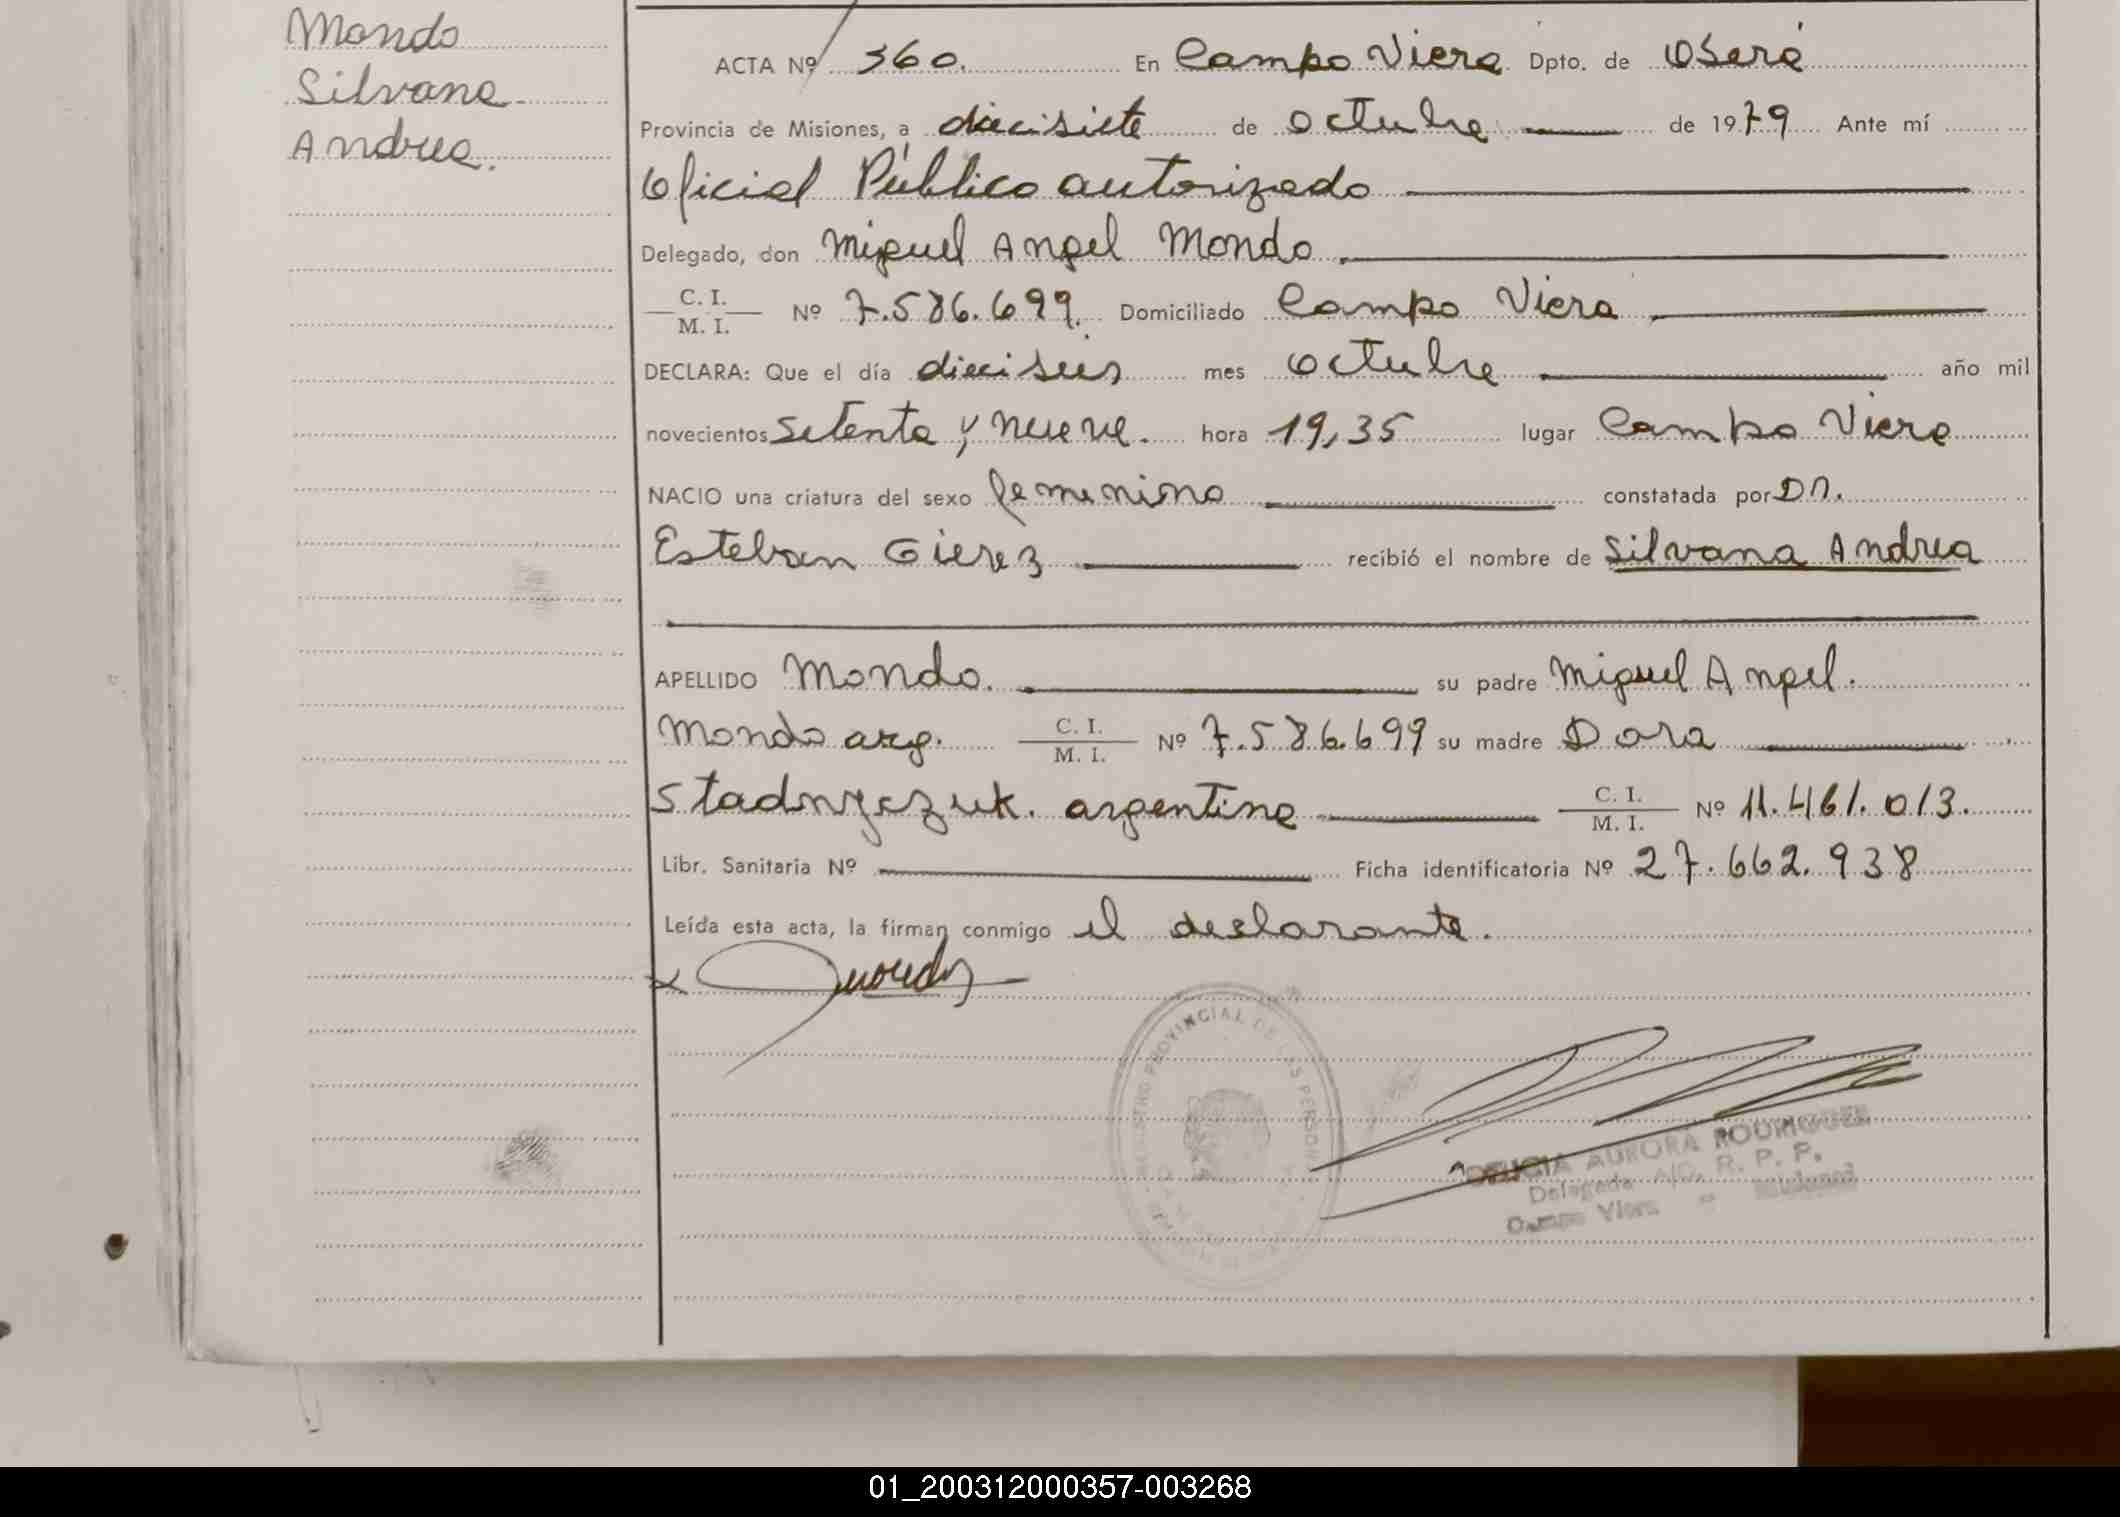 Mondo
Silvana
Andrea.
ACTA Nº 360. En Campo Viera Dpto. de Oberá
Provincia de Misiones, a diecisiete de octubre de 1979 Ante mí
Oficial Público autorizado
Delegado, don Miguel Angel Mondo
C. I.
M. I. Nº 7.586.699. Domiciliado Campo Viera
DECLARA: Que el día dieciseis mes octubre año mil
novecientos setenta y nueve. hora 19,35 lugar Campo Viera
NACIO una criatura del sexo femenino constatada por Dr.
Esteban Gierez recibió el nombre de Silvana Andrea
APELLIDO Mondo. su padre Miguel Angel.
Mondo arg. C. I.
M. I. Nº 7.586.699 su madre Dora
Stadnyczuk. argentina C. I.
M. I. Nº 11.461.013.
Libr. Sanitaria Nº Ficha identificatoria Nº 27.662.938
Leída esta acta, la firman conmigo el declarante.
REGISTRO PROVINCIAL DE LAS PERSONAS
AURORA RODRIGUEZ
Delegada A/C, R. P. P.
Campo Viera
01_200312000357-003268